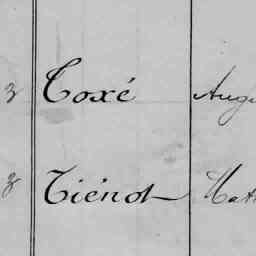 3 Toxé Augu
3 Tiénot Math